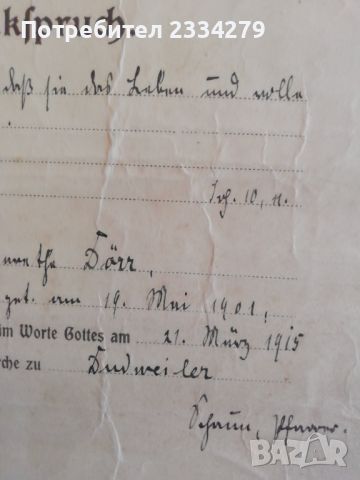 Потребител 2334279
kspruch.
daß sie das Leben und volle
Joh. 10, 11.
arethe Dörr,
get. am 19. Mai 1901,
im Worte Gottes am 21. März 1915
rche zu Dudweiler
Schaum, Pfarrer.
BAZAR
bg